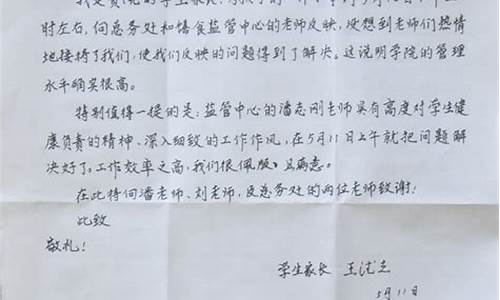 的学生家长
时左右,向总务处和膳食监管中心的老师反映,没想到老师们热情
地接待了我们,使我们反映的问题得到了解决。这说明学院的管理
水平确实很高。
特别值得一提的是:监管中心的潘志刚老师具有高度对学生健
康负责的精神、深入细致的工作作风,在5月11日上午就把问题解
决好了。工作效率之高,我们很佩服、且
在此特向潘老师、刘老师,及总务处的两位老师致谢!
此致
敬礼!
学生家长 王
5月11日